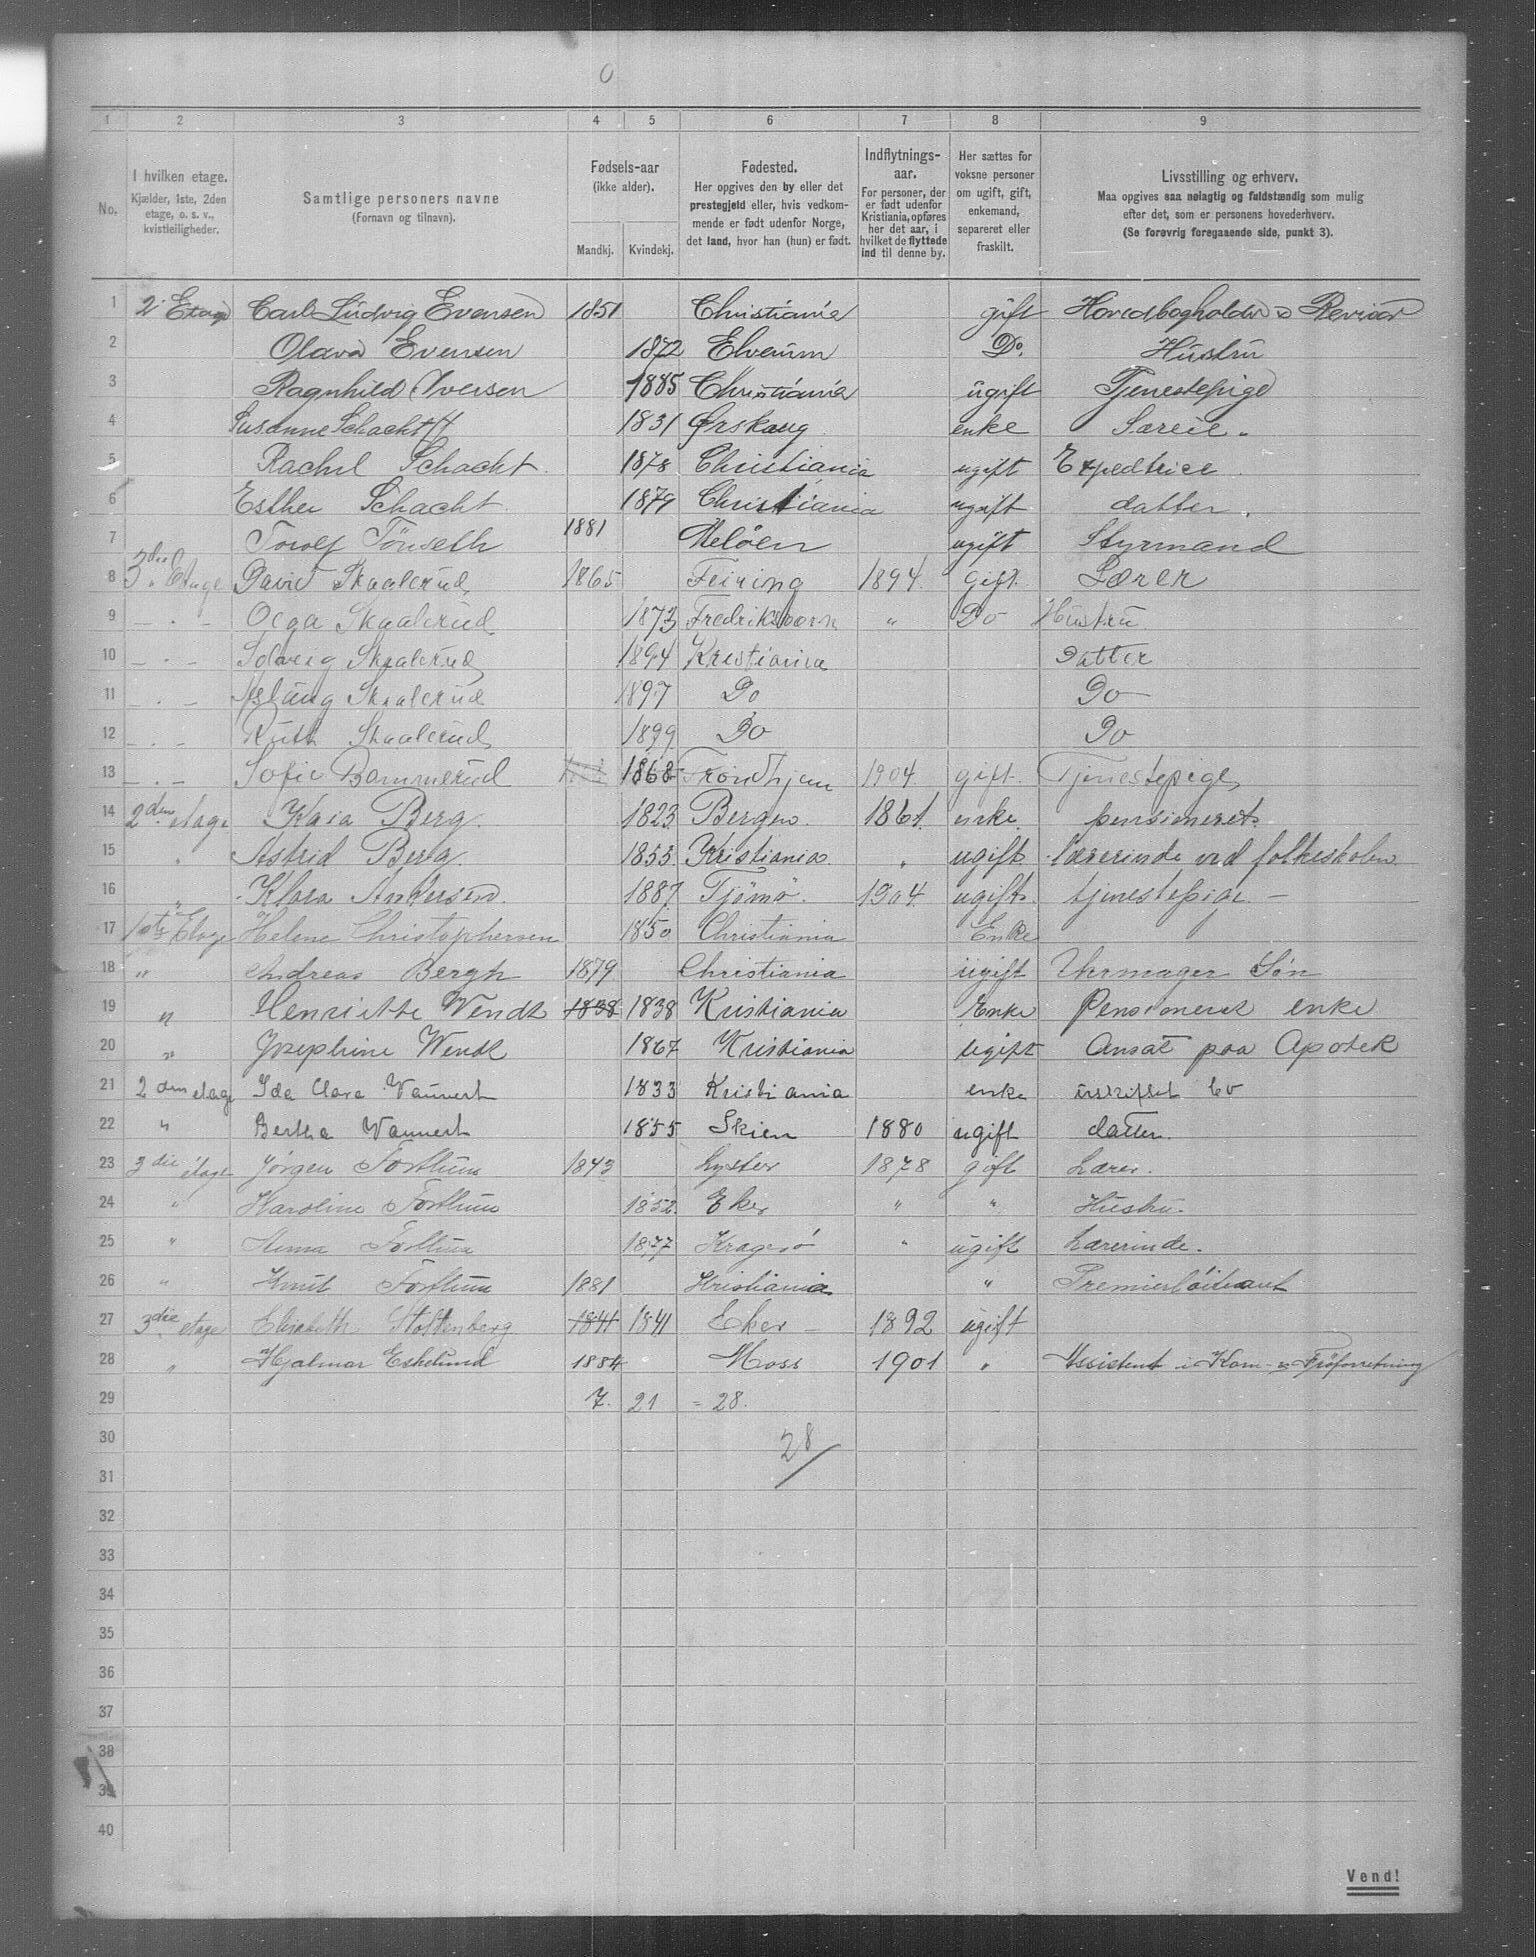 0
1 2 3 4 5 6 7 8 9
No. I hvilken etage. Kjælder, 1ste, 2den etage, o. s. v., kvistleiligheder. Samtlige personers navne (Fornavn og tilnavn). Fødsels-aar (ikke alder). Mandkj. Kvindekj. Fødested. Her opgives den by eller det prestegjeld eller, hvis vedkommende er født udenfor Norge, det land, hvor han (hun) er født. Indflytnings-aar. For personer, der er født udenfor Kristiania, opføres her det aar, i hvilket de flyttede ind til denne by. Her sættes for voksne personer om ugift, gift, enkemand, separeret eller fraskilt. Livsstilling og erhverv. Maa opgives saa nøiagtig og fuldstændig som mulig efter det, som er personens hovederhverv. (Se forøvrig foregaaende side, punkt 3).
1 2 Etage Carl Ludvig Evensen 1851 Christiania gift Hovedbogholder & Revisor
2 Olava Evensen 1872 Elverum Do. Hustru
3 Ragnhild Iversen 1885 Christiania ugift Tjenestepige
4 Susanne Schacht 1831 Ørskaug enke
5 Rachel Schacht. 1878 Christiania ugift Expedtrice
6 Esther Schacht. 1879 Christiania ugift datter.
7 Torolf Tønseth 1881 Meløen ugift Styrmand
8 3die Etage David Skaalerud 1865 Feiring 1894 gift. Lærer
9 — . — Olga Skaalerud 1873 Fredriksværn " Do Hustru
10 — . — Solveig Skaalerud 1894 Kristiania Datter
11 — . — Aslaug Skaalerud 1897 Do Do
12 — . — Ruth Skaalerud 1899 Do Do
13 — . — Sofie Bommerud 1868 Trondhjem 1904 gift. Tjenestepige
14 2den etage Kaia Berg. 1823 Bergen. 1861. enke. pensioneret.
15 " Astrid Berg. 1853. Kristiania. " ugift. lærerinde ved folkeskolen
16 " Klara Andersen. 1887. Tjømø. 1904. ugift. tjenestepige. —
17 1ste Etage Helene Christophersen 1850 Christiania Enke
18 " Andreas Bergh 1879 Christiania ugift Uhrmager Søn
19 " Henriette Wendt 1838 1838 Kristiania Enke Pensioneret enke
20 " Josephine Wendt 1867 Kristiania ugift Ansat paa Apotek
21 2den etage Ida Clara Vauvert 1833 Kristiania enke uskiftet bo
22 " Bertha Vauvert 1855 Skien 1880 ugift datter.
23 3die etage Jørgen Forthun 1843 Lyster 1878 gift Lærer.
24 " Karoline Forthun 1852. Eker " " Hustru.
25 " Anna Forthun 1877 Kragerø " ugift Lærerinde.
26 " Knut Forthun 1881 Kristiania " Premierløitnant
27 3die etage Elisabeth Stoltenberg 1841 1841 Eker — 1892 ugift
28 " Hjalmar Eskelund 1884 Moss 1901 " Assistent i Korn- & Frøforretning
29 7. 21 = 28.
30 28
31
32
33
34
35
36
37
38
39
40
Vend!